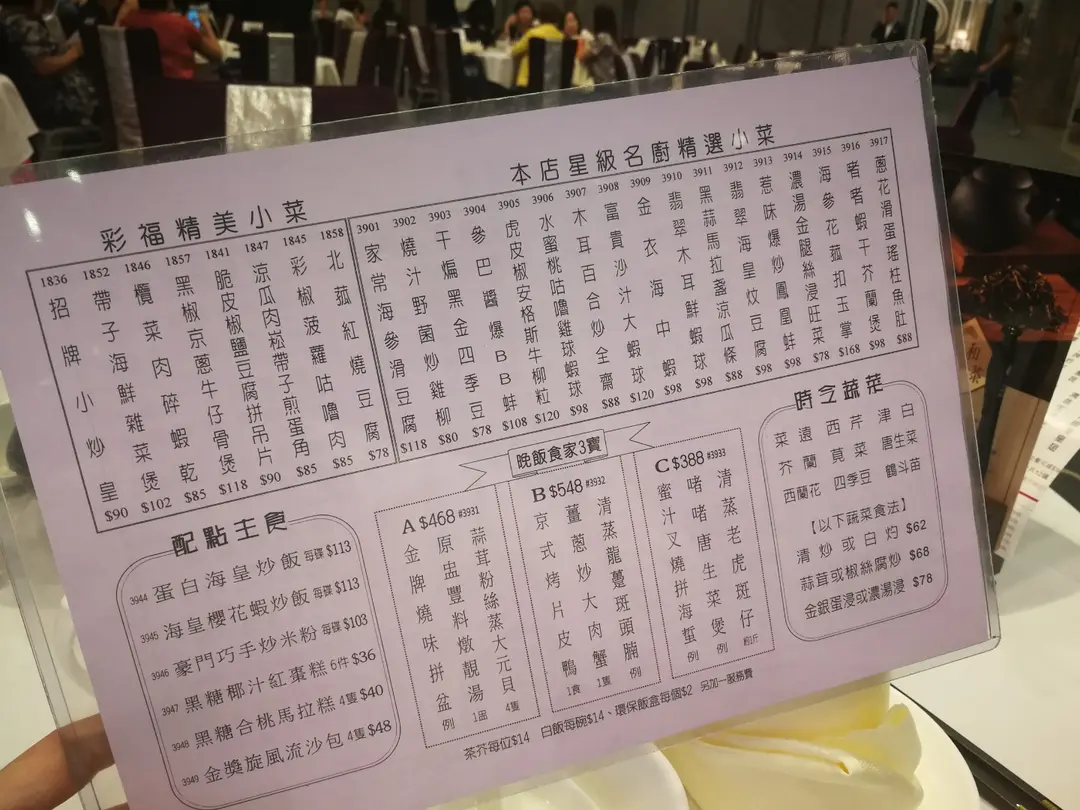 彩福精美小菜
1836 招牌小炒皇 $90
1852 帶子海鮮雜菜煲 $102
1846 欖菜肉碎蝦乾 $85
1857 黑椒京蔥牛仔骨煲 $118
1841 脆皮椒鹽豆腐拼吊片 $90
1847 涼瓜肉崧帶子煎蛋角 $85
1845 彩椒菠蘿咕嚕肉 $85
1858 北菰紅燒豆腐 $78
本店星級名廚精選小菜
3901 家常海參滑豆腐 $118
3902 燒汁野菌炒雞柳 $80
3903 干煸黑金四季豆 $78
3904 參巴醬爆BB蚌 $108
3905 虎皮椒安格斯牛柳粒 $120
3906 水蜜桃咕嚕雞球蝦球 $98
3907 木耳百合炒全齋 $88
3908 富貴沙汁大蝦球 $120
3909 金衣海中蝦 $98
3910 翡翠木耳鮮蝦球 $98
3911 黑蒜馬拉盞涼瓜條 $88
3912 翡翠海皇炆豆腐 $98
3913 惹味爆炒鳳凰蚌 $98
3914 濃湯金腿絲浸旺菜 $78
3915 海參花菰扣玉掌 $168
3916 啫啫蝦干芥蘭煲 $98
3917 蔥花滑蛋瑤柱魚肚 $88
配點主食
3944 蛋白海皇炒飯 每碟 $113
3945 海皇櫻花蝦炒飯 每碟 $113
3946 豪門巧手炒米粉 每碟 $103
3947 黑糖椰汁紅棗糕 6件 $36
3948 黑糖合桃馬拉糕 4隻 $40
3949 金獎旋風流沙包 4隻 $48
晚飯食家3寶
A $468 #3931
蒜茸粉絲蒸大元貝 4隻
原盅豐料燉靚湯 1盅
金牌燒味拼盆 例
B $548 #3932
清蒸龍躉斑頭腩 例
薑蔥炒大肉蟹 1隻
京式烤片皮鴨 1食
C $388 #3933
清蒸老虎斑仔 約斤
啫啫唐生菜煲 例
蜜汁叉燒拼海蜇 例
時令蔬菜
菜遠 西芹 津白
芥蘭 莧菜 唐生菜
西蘭花 四季豆 鶴斗苗
【以下蔬菜食法】
清炒或白灼 $62
蒜茸或椒絲腐炒 $68
金銀蛋浸或濃湯浸 $78
茶芥每位$14 白飯每碗$14、環保飯盒每個$2 另加一服務費